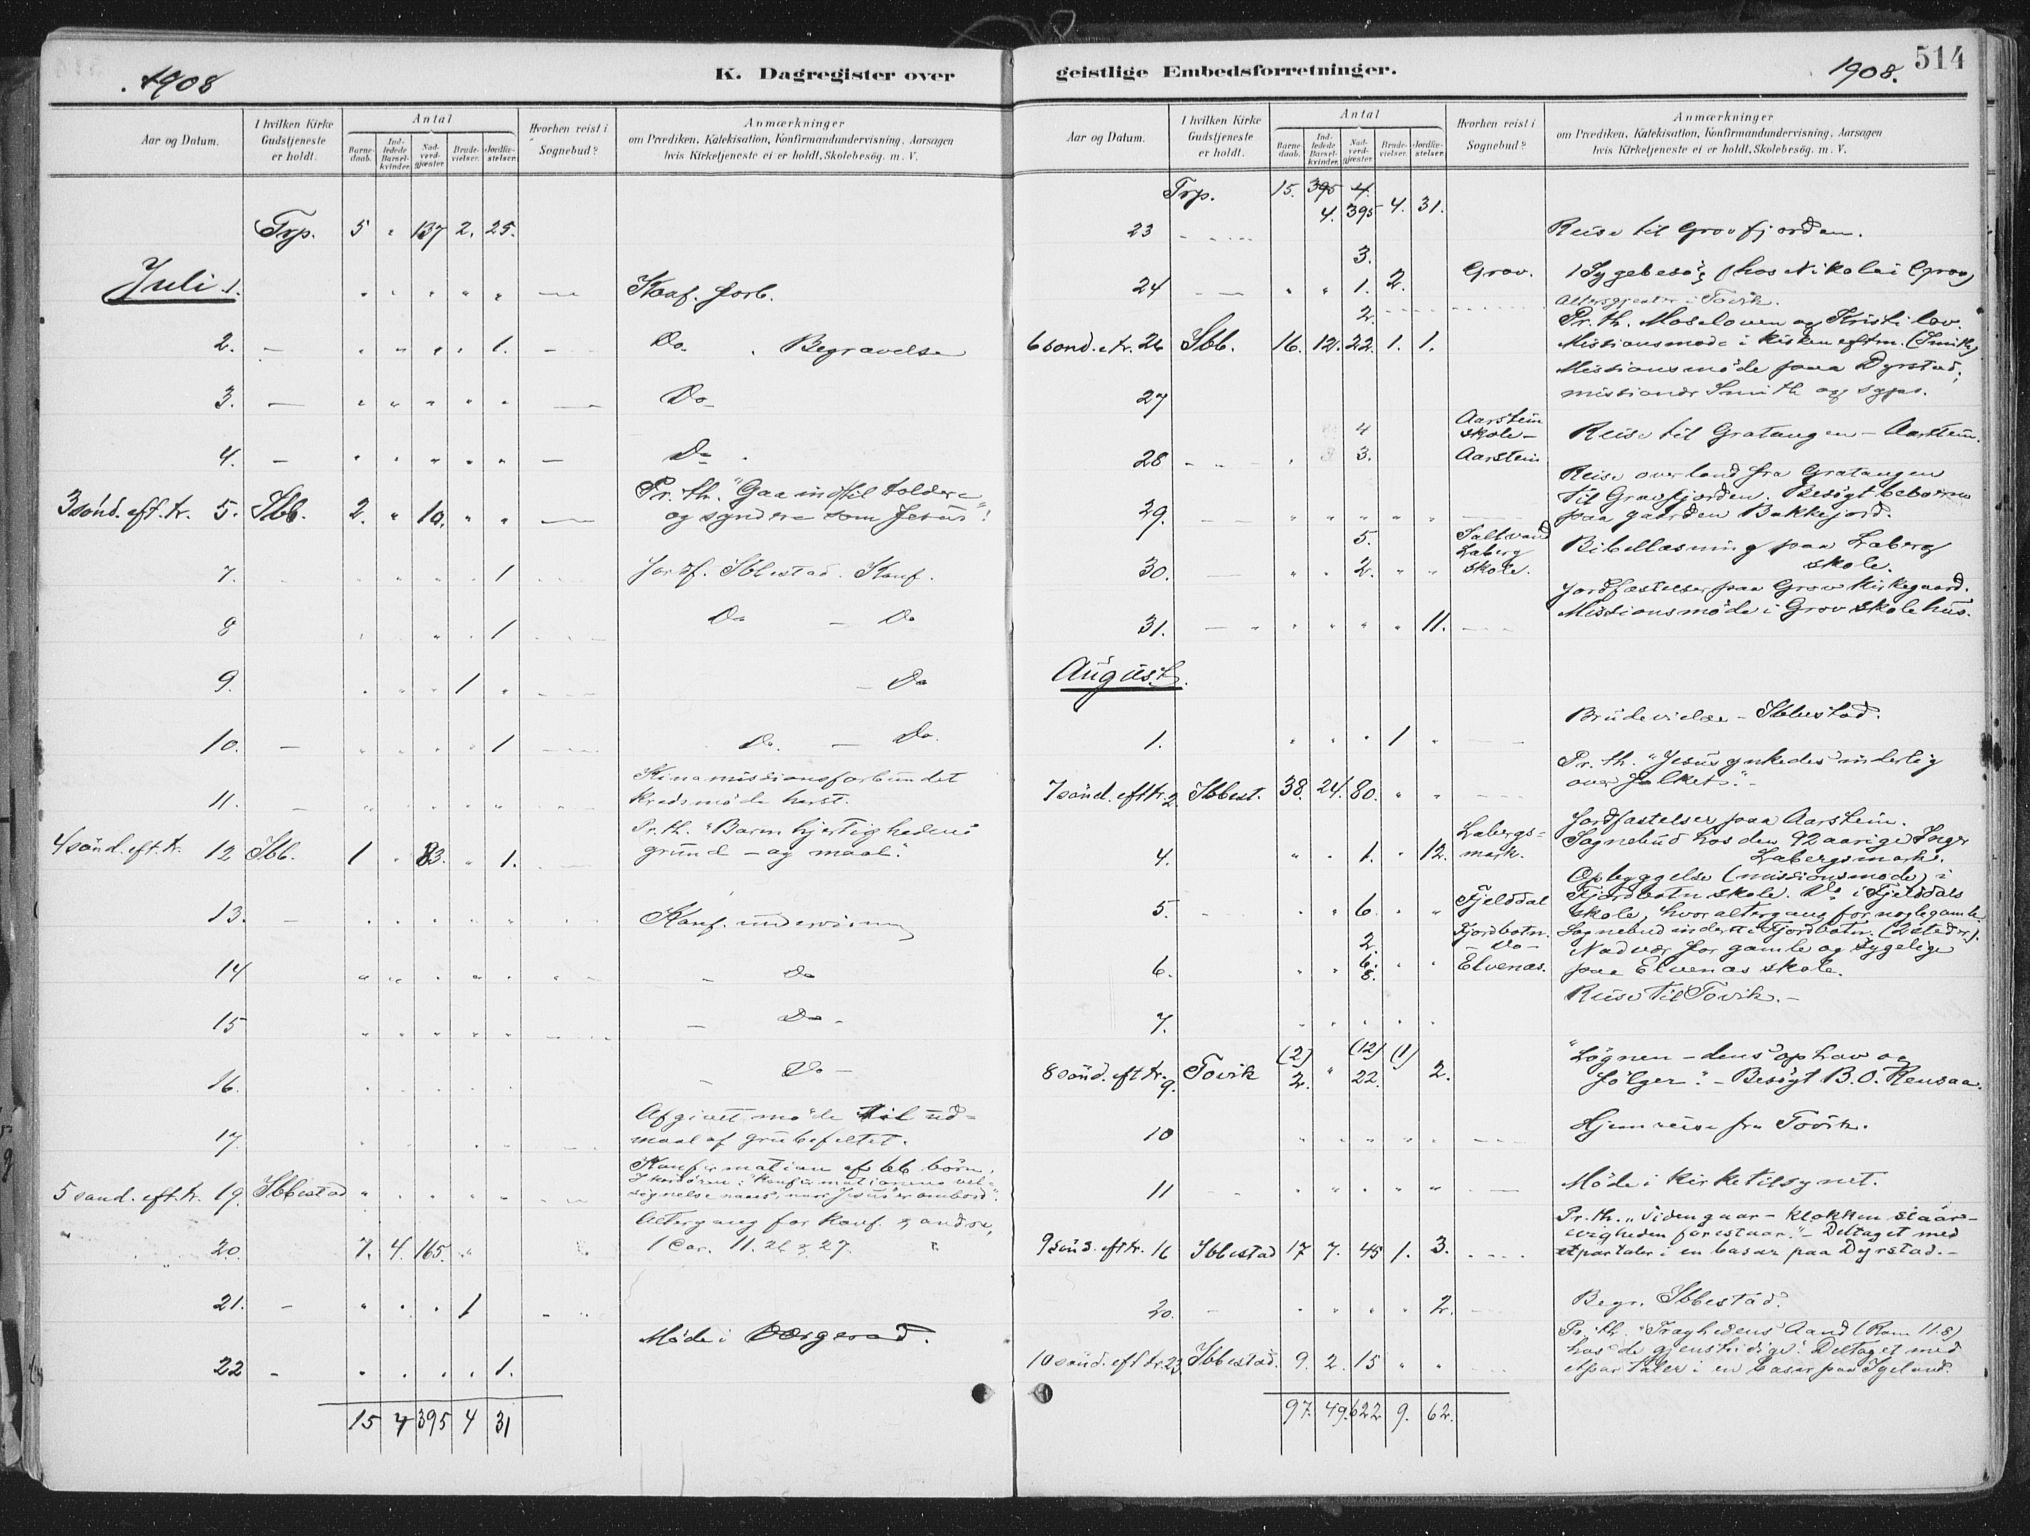 1908
K. Dagregister over
Aar og Datum.
I hvilken Kirke Gudstjeneste er holdt.
Antal
Barnedaab.
Indledede Barselkvinder.
Nadverdgjæster.
Brudevielser.
Jordfæstelser.
Hvorhen reist i Sognebud?
Anmærkninger
om Prædiken, Katekisation, Konfirmandundervisning, Aarsagen
hvis Kirketjeneste ei er holdt, Skolebesøg. m. V.
Trp. 5 " 137 2. 25.
Juli 1. " " " " " — Konf. forb.
2. — " " " " 1. — Do . Begravelse
3. — " " " " " — Do
4. — " " " " " — Do .
3 sönd. eft. tr. 5. Ibb. 2. " 10. " " — Pr. th. "Gaa ind til toldere
og syndere som Jesus"!
7. " " " " 1 Jordf. Ibbestad. Konf.
8 " " " " 1 Do — Do
9. " " " 1 " — Do
10. — " " " " 1 Do. — Do.
11. — " " " " " Kinamissionsforbundet
kredsmøde herst.
4 sönd. eft. tr. 12 Ibb. 1 " 83. " 1. Pr. th. "Barmhjertighedens
grund — og maal".
13. — " " " " " Konf. undervisning
14 " " " " " — Do
15 " " " " " — Do —
16. " " " " " — Do —
17. " " " " " Afgivet møde til ud-
maal af grubefeltet.
5 sönd. eft. tr. 19. Ibbestad " " " " " Konfirmation af 66 børn.
" 20. 7. 4. 165. " Altergang for konf. & andre,
1 Cor. 11. 26 & 27.
21. — " " " 1
22 — " " " " 1. Møde i Værgeraad.
15 4 395 4 31
geistlige Embedsforretninger.
1908. 514
Aar og Datum.
I hvilken Kirke Gudstjeneste er holdt.
Antal
Barnedaab.
Indledede Barselkvinder.
Nadverdgjæster.
Brudevielser.
Jordfæstelser.
Hvorhen reist i Sognebud?
Anmærkninger
om Prædiken, Katekisation, Konfirmandundervisning, Aarsagen
hvis Kirketjeneste ei er holdt, Skolebesøg. m. V.
Trp. 15. 395 4.
4. 395 4. 31.
23 Reise til Grovfjorden.
3.
24 — " " 1. 2. Grov. 1 Sygebesög (hos Nikolai Grov)
Altersgjester i Tovik.
2. Pr. th. Moseloven og Kristi lov.
6 sond. e tr. 26 Ibb. 16. 12. 22. 1. 1. Missionsmøde i kirken eftm. (Smith)
27 Missionsmøde paa Dyrstad,
missionær Smith og sgpr.
4 Aarstein skole —
28 3. Aarstein Reise til Gratangen — Aarstein.
29. Reise over land fra Gratangen
til Gravfjorden. Besøgt beboerne
paa gaarden Bakkejord.
5. Saltvand
30. — " " 2. " " Laberg skole. Bibellæsning paa Laberg
skole.
31. — " " " " 11. Jordfæstelser paa Grov kirkegaard.
Missionsmøde i Grov skolehus.
August.
1. " " " 1 " Brudevielse — Ibbestad.
7 sönd. eft tr. 2 Ibbest. 38. 24. 80. " " Pr. th. "Jesus ynkedes inderlig
over folket". —
4. " " 1. " 12. Labergsmark. Jordfæstelser paa Aarstein.
Sognebud hos den 92 aarige Inger
Labergsmark.
5. " " 6. " " Fjelddal Opbyggelse (missionsmøde) i
Fjordbotn skole. Do i Fjelddals
skole, hvor altergang for nogle gamle.
2. Fjordbotn. Sognebud inderst i Fjordbotn. (2 steder).
— Do —
6. " " 6. 8. " " Elvenæs. Nadvær for gamle og sygelige
paa Elvenæs skole.
7. " " " " " Reise til Tovik. —
(2) (12) (1)
8 sönd. eft tr. 9. Tovik 2. " 22. 2. "Løgnen — dens ophav og
følger". — Besøgt B. O. Rensaa.
10 " " " " " Hjemreise fra Tovik.
11 — " " " " " Møde i kirketilsynet.
9 sönd. eft tr. 16 Ibbestad 17 7. 45 1. 3. Pr. th. "Tiden gaar — klokken slaar —
evigheden forestaar". — Deltaget med
et par taler i en basar paa Dyrstad. —
20. — " " " " 2. Begr. Ibbestad.
10 sönd. eft tr. 23. Ibbestad. 9. 2. 15 " " Pr. th. "Træghedens Aand (Rom 11.8)
hos de gjenstridige". Deltaget med
et par taler i en basar paa
97. 49. 622 9. 62.